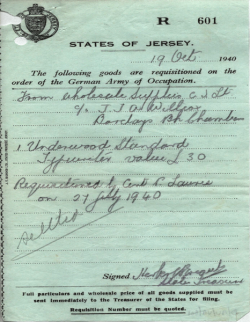 R 601
STATES OF JERSEY.
19 Oct 1940
The following goods are requisitioned on the
order of the German Army of Occupation.
From Wholesale Supplies C.I. Lt
c/o J.J.
Barclays Bk Chambers
1 Underwood Standard
Typewriter value £30
Requisitioned by Cent P. Laurie
on 27 July 1940
Settled
Signed
Full particulars and wholesale price of all goods supplied must be
sent immediately to the Treasurer of the States for filing.
Requisition Number must be quoted.